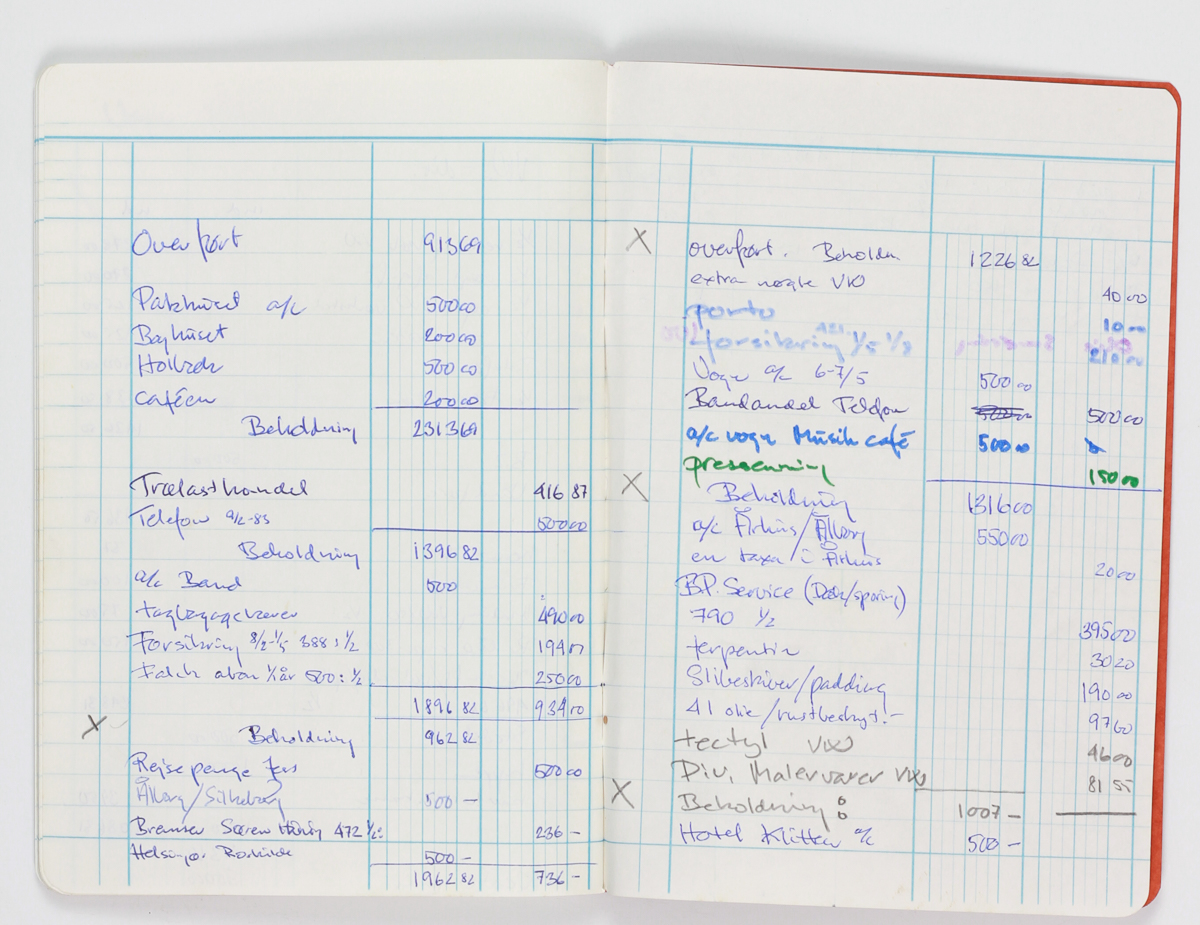 Overført 913 69
Pakhuset a/c 500 00
Baghuset 200 00
Holbæk 500 00
caféen 200 00
Beholdning 2313 69
Trælasthandel 416 87
Telefon a/c-83 500 00
Beholdning 1396 82
a/c Band 500
tagbagagebærer 490 00
Forsikring 8/2-1/5 388 : 1/2 194 00
Falck abon 1/1 år 500 : 1/2 250 00
1896 82 934 00
X
Beholdning 962 82
Rejsepenge 500 00
Ålborg/Silkeborg 500 —
Bremser Søren 472 1/2: 236 —
Helsingør Roskilde 500 —
1962 82 736 —
X overført. Beholdn 1226 82
extra nøgle VW 40 00
porto 10 00
forsikring 1/5 1/8 210 00
Vogn a/c 6-7/5 500 00
Bandandel Telefon 500 00
a/c vogn Müsik café 500 00
pressening 150 00
X Beholdning 1316 00
a/c Århus/Ålborg 550 00
en taxa i Århus 20 00
B.P. Service (Dæk/sporing)
790 1/2 395 00
terpentin 30 20
Slibeskiver/padding 190 00
4 l olie/rustbeskyt. — 97 60
tectyl VW 46 00
Div. Malervarer VW 81 55
X Beholdning : 1007 —
Hotel Klitten a/c 500 —